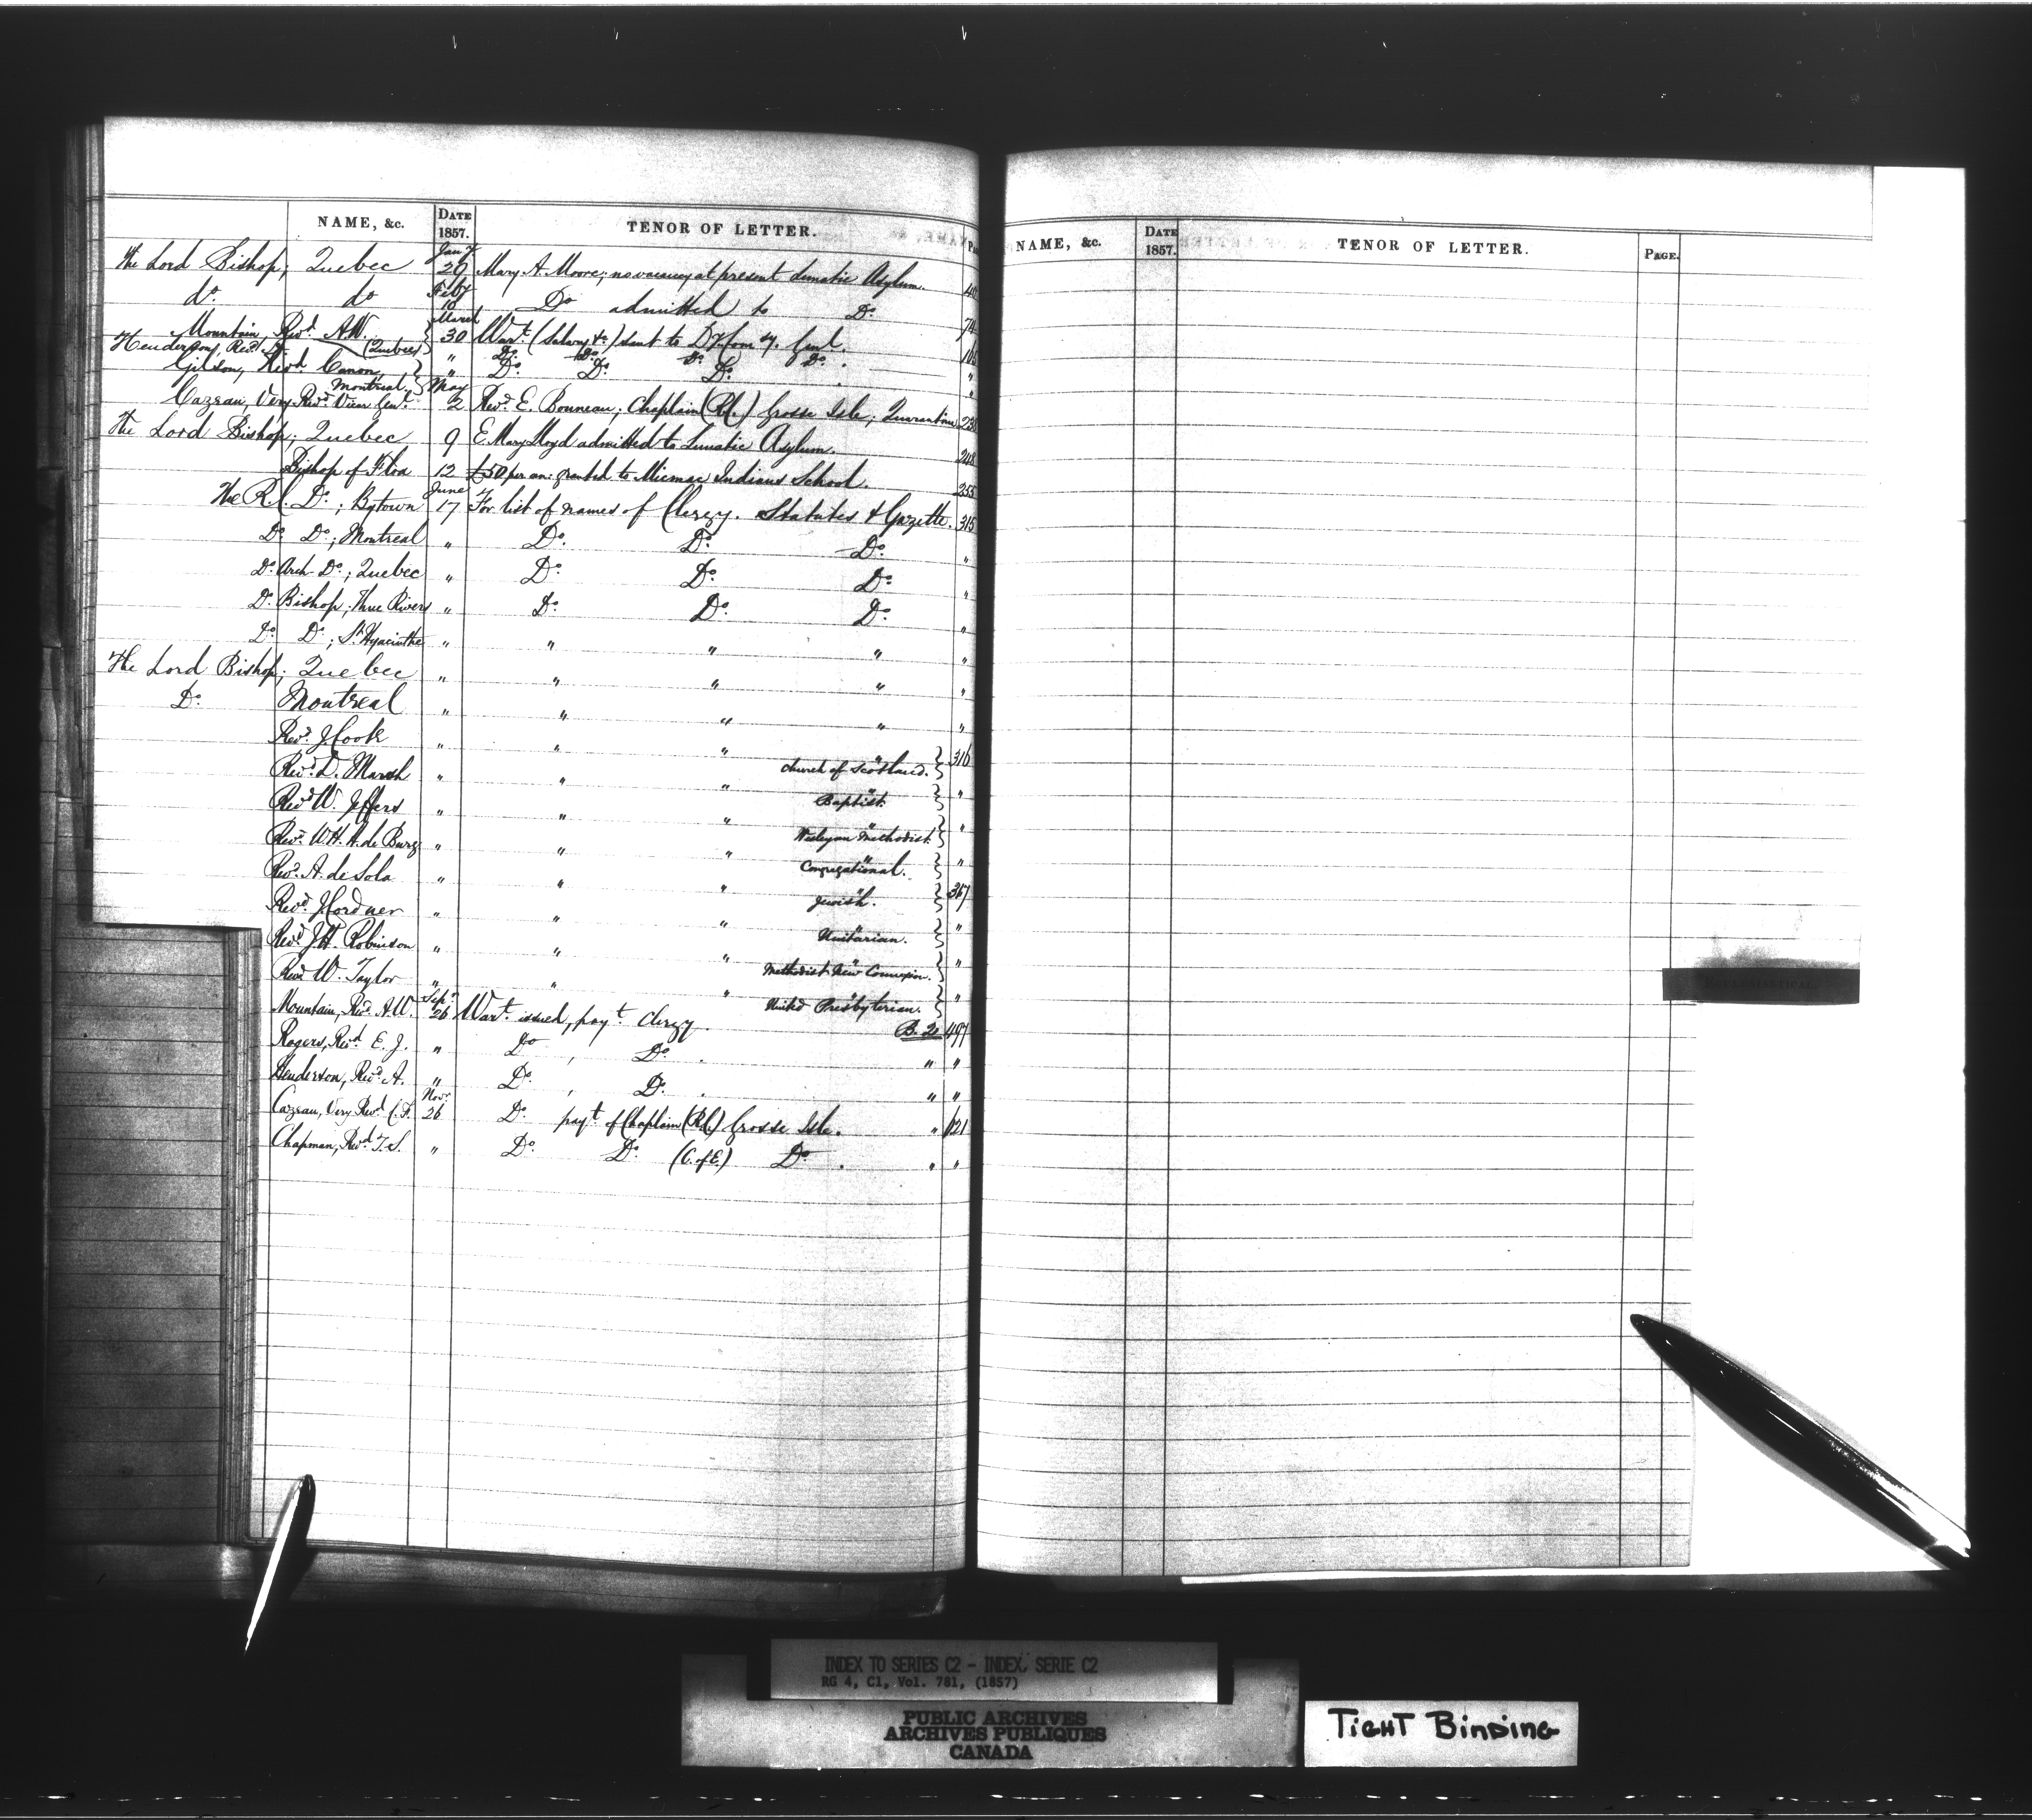 NAME, &c. DATE 1857. TENOR OF LETTER.
The Lord Bishop; Quebec Jany 29 Mary A. Moore; no vacancy at present Lunatic Asylum.
do. do Feby Do admitted to Do. 74
Mountain Revd. A.W. March 30 Wart. (Salary &c) sent to Dy Comy. Genl.
Henderson, Revd. A. (Quebec) " Do. Do. Do. Do. "
Gilson, Revd Canon, Montreal " Do. Do. Do. "
Cazeau, Very Revd. Vicar Genl. May 2 Revd. E. Bonneau; Chaplain (R.C.) Grosse Isle; Quarantine
The Lord Bishop; Quebec 9 E. Mary Lloyd admitted to Lunatic Asylum. 248
Bishop of 12 £50 per an: granted to Micmac Indians School. 255
The R.C. Do.; Bytown June 17 For list of names of Clergy. Statutes & Gazette. 315
Do. Do.; Montreal " Do. Do. Do. "
Do. Arch Do.; Quebec " Do. Do. Do. "
Do. Bishop; Three Rivers " Do. Do. Do. "
Do. Do.; St. Hyacinthe " " " " "
The Lord Bishop; Quebec " " " " "
Do. Montreal " " " " "
Revd. J. Cook " " " " Church of Scotland. 316
Revd. D. Marsh " " " " Baptist. "
Revd W. Jeffers " " " " Wesleyan Methodist. "
Revd. W.H.H. de Burg " " " " Congregational. "
Revd. A. de Sola " " " " Jewish. 317
Revd. J. Cordner " " " " Unitarian. "
Revd. J.H. Robinson " " " " Methodist New Connexion. "
Revd W. Taylor " " " " United Presbyterian. "
Mountain, Revd. A.W. Sepr. 26 Wart. issued, payt. Clergy. B. 20 497
Rogers, Revd E. J. " Do , Do. . " "
Henderson, Revd. A. " Do. , Do. . " "
Cazeau, Very Revd C.F. Novr. 26 Do. payt of Chaplain (R.C.) Grosse Isle. " 621
Chapman, Revd. T.S. " Do. Do. (C. of E.) Do . " "
NAME, &c. DATE 1857. TENOR OF LETTER. PAGE.
ECCLESIASTICAL
INDEX TO SERIES C2 - INDEX, SERIE C2
RG 4, C1, Vol. 781, (1857)
PUBLIC ARCHIVES
ARCHIVES PUBLIQUES
CANADA
TIGHT BINDING